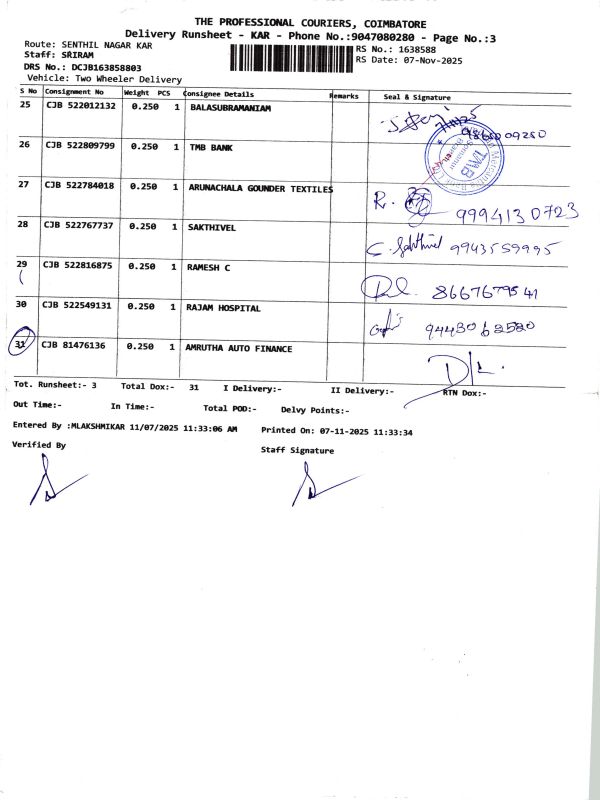 THE PROFESSIONAL COURIERS, COIMBATORE
Delivery Runsheet - KAR - Phone No.:9047080280 - Page No.:3
Route: SENTHIL NAGAR KAR
RS No.: 1638588
Staff: SRIRAM
RS Date: 07-Nov-2025
DRS No.: DCJB163858803
Vehicle: Two Wheeler Delivery
S No Consignment No Weight PCS Consignee Details Remarks Seal & Signature
25 CJB 522012132 0.250 1 BALASUBRAMANIAM
26 CJB 522809799 0.250 1 TMB BANK
TMB
27 CJB 522784018 0.250 1 ARUNACHALA GOUNDER TEXTILES R. 9994130723
28 CJB 522767737 0.250 1 SAKTHIVEL C. Sakthivel 9943559995
29 CJB 522816875 0.250 1 RAMESH C
30 CJB 522549131 0.250 1 RAJAM HOSPITAL
31 CJB 81476136 0.250 1 AMRUTHA AUTO FINANCE D/L.
Tot. Runsheet:- 3 Total Dox:- 31 I Delivery:- II Delivery:- RTN Dox:-
Out Time:- In Time:- Total POD:- Delvy Points:-
Entered By :MLAKSHMIKAR 11/07/2025 11:33:06 AM Printed On: 07-11-2025 11:33:34
Verified By
Staff Signature